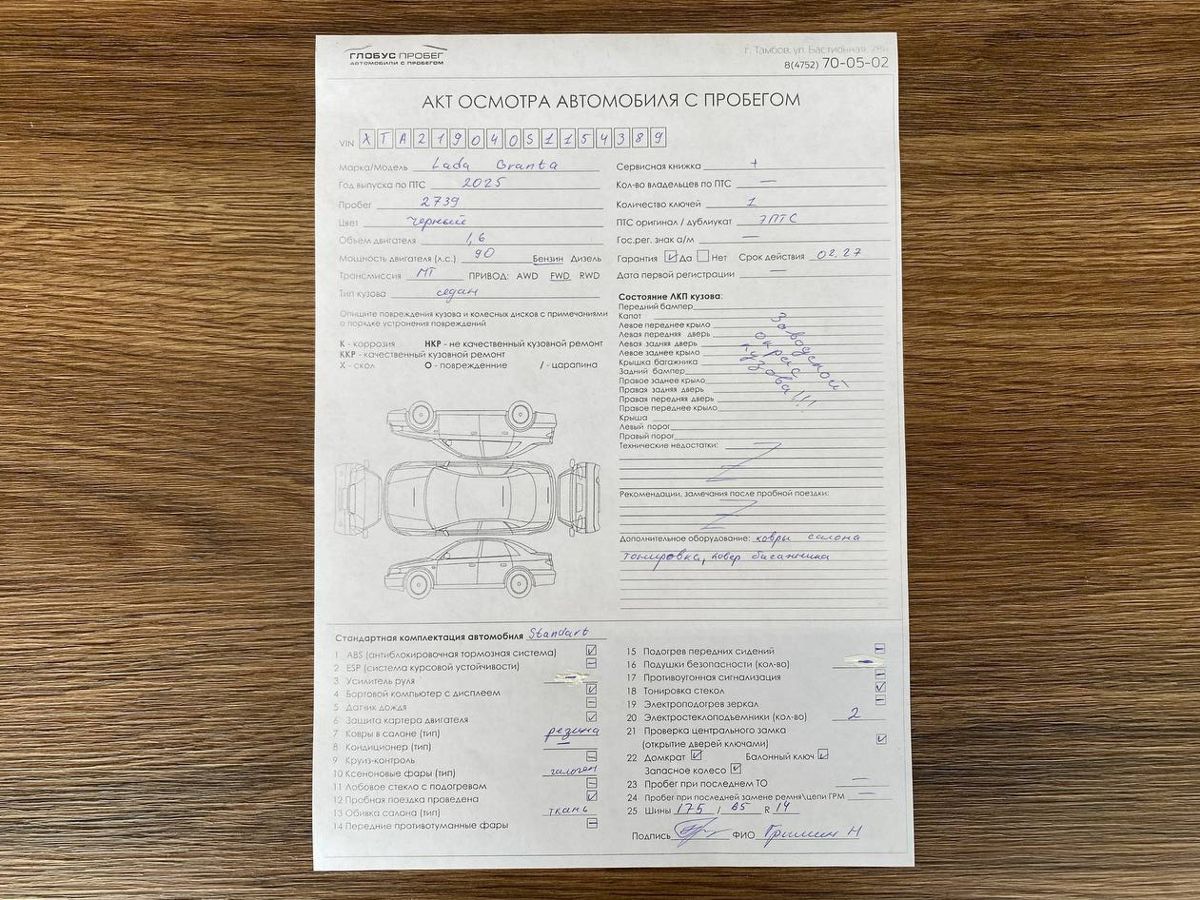 ГЛОБУС ПРОБЕГ
АВТОМОБИЛИ С ПРОБЕГОМ
г. Тамбов, ул. Бастионная, 28и
8(4752) 70-05-02
АКТ ОСМОТРА АВТОМОБИЛЯ С ПРОБЕГОМ
VIN XTA219040S1154389
Марка/Модель Lada Granta
Год выпуска по ПТС 2025
Пробег 2739
Цвет черный
Объем двигателя 1,6
Мощность двигателя (л.с.) 90 Бензин Дизель
Трансмиссия МТ ПРИВОД: AWD FWD RWD
Тип кузова седан
Опишите повреждения кузова и колесных дисков с примечаниями
о порядке устронения повреждений
К - коррозия НКР - не качественный кузовной ремонт
ККР - качественный кузовной ремонт
Х - скол О - поврежденние / - царапина
Сервисная книжка +
Кол-во владельцев по ПТС —
Количество ключей 1
ПТС оригинал / дублиукат ЭПТС
Гос.рег. знак а/м —
Гарантия ✓ Да Нет Срок действия 02.27
Дата первой регистрации —
Состояние ЛКП кузова:
Передний бампер
Капот
Левое переднее крыло
Левая передняя дверь
Левая задняя дверь
Левое заднее крыло
Крышка багажника
Задний бампер
Правое заднее крыло
Правая задняя дверь
Правая передняя дверь
Правое переднее крыло
Крыша
Левый порог
Правый порог
Заводской
окрас
кузова!!!
Технические недостатки:
Рекомендации, замечания после пробной поездки:
Дополнительное оборудование: ковры салона
тонировка, ковер багажника
Стандартная комплектация автомобиля Standart
1 ABS (антиблокировочная тормозная система) ✓
2 ESP (система курсовой устойчивости) —
3 Усилитель руля —
4 Бортовой компьютер с дисплеем ✓
5 Датчик дождя —
6 Защита картера двигателя ✓
7 Ковры в салоне (тип) резина
8 Кондиционер (тип) —
9 Круиз-контроль —
10 Ксеноновые фары (тип) галоген
11 Лобовое стекло с подогревом —
12 Пробная поездка проведена ✓
13 Обивка салона (тип) ткань
14 Передние противотуманные фары —
15 Подогрев передних сидений —
16 Подушки безопасности (кол-во) —
17 Противоугонная сигнализация —
18 Тонировка стекол ✓
19 Электроподогрев зеркал —
20 Электростеклоподъемники (кол-во) 2
21 Проверка центрального замка
(открытие дверей ключами) ✓
22 Домкрат ✓ Балонный ключ ✓
Запасное колесо ✓
23 Пробег при последнем ТО —
24 Пробег при последней замене ремня\цепи ГРМ —
25 Шины 175 / 65 R 14
Подпись ФИО Гришин Н